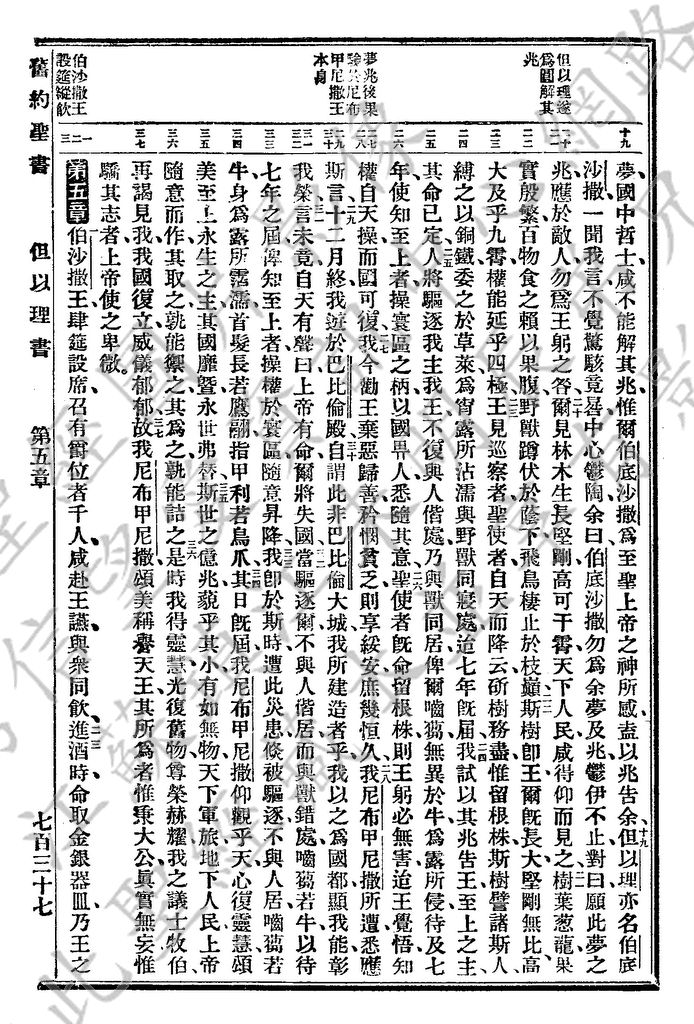 舊約聖書 但以理書 第五章 七百三十七
但以理遂爲圓解其兆
夢兆後果驗於尼布甲尼撒王本身
伯沙撒王設筵縱飲
十九
二十
二一
二二
二三
二四
二五
二六
二七
二八
二九
三十
三一
三二
三三
三四
三五
三六
三七
一
二
三
夢國中哲士咸不能解其兆惟爾伯底沙撒爲至聖上帝之神所感盍以兆告余但以理亦名伯底
沙撒一聞我言不覺驚駭竟晷中心鬱陶余曰伯底沙撒勿爲余夢及兆鬱伊不止對曰願此夢之
兆應於敵人勿爲王躬之咎爾見林木生長堅剛高可干霄天下人民咸得仰而見之樹葉葱蘢果
實殷繁百物食之賴以果腹野獸蹲伏於蔭下飛鳥棲止於枝巔斯樹卽王爾旣長大堅剛無比高
大及乎九霄權能延乎四極王見巡察者聖使者自天而降云斫樹務盡惟留根株斯樹譬諸斯人
縛之以銅鐵委之於草萊爲宵露所沾濡與野獸同寢處迨七年旣屆我試以其兆告王至上之主
其命已定人將驅逐我主我王不復與人偕處乃與獸同居俾爾嚙蒭無異於牛爲露所侵待及七
年使知至上者操寰區之柄以國畀人悉隨其意聖使者旣命留根株則王躬必無害迨王覺悟知
權自天操而國可復我今勸王棄惡歸善矜憫貧乏則享綏安庶幾恒久我尼布甲尼撒所遭悉應
斯言十二月終我遊於巴比倫殿自謂此非巴比倫大城我所建造者乎我以之爲國都顯我能彰
我榮言未竟自天有聲曰上帝有命爾將失國當驅逐爾不與人偕居而與獸錯處嚙蒭若牛以待
七年之屆俾知至上者操權於寰區隨意昇降我卽於斯時遭此災患倐被驅逐不與人居嚙蒭若
牛身爲露所霑濡首髮長若鷹翮指甲利若鳥爪其日旣屆我尼布甲尼撒仰觀乎天心復靈慧頌
美至上永生之主其國靡曁永世弗替斯世之億兆藐乎其小有如無物天下軍旅地下人民上帝
隨意而作其取之孰能禦之其爲之孰能詰之是時我得靈慧光復舊物尊榮赫耀我之議士牧伯
再謁見我我國復立威儀郁郁故我尼布甲尼撒頌美稱譽天王其所爲者惟秉大公眞實無妄惟
驕其志者上帝使之卑微
第五章 伯沙撒王肆筵設席召有爵位者千人咸赴王讌與衆同飲進酒時命取金銀器皿乃王之